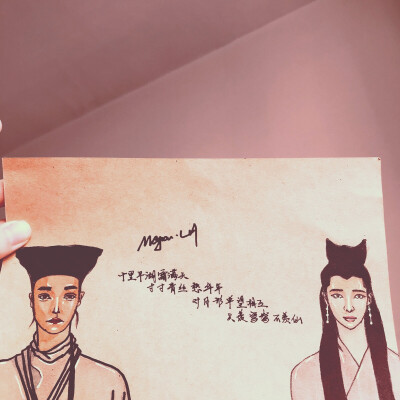 十里平湖霜满天
寸寸青丝愁华年
对月形单望相互
只羡鸳鸯不羡仙